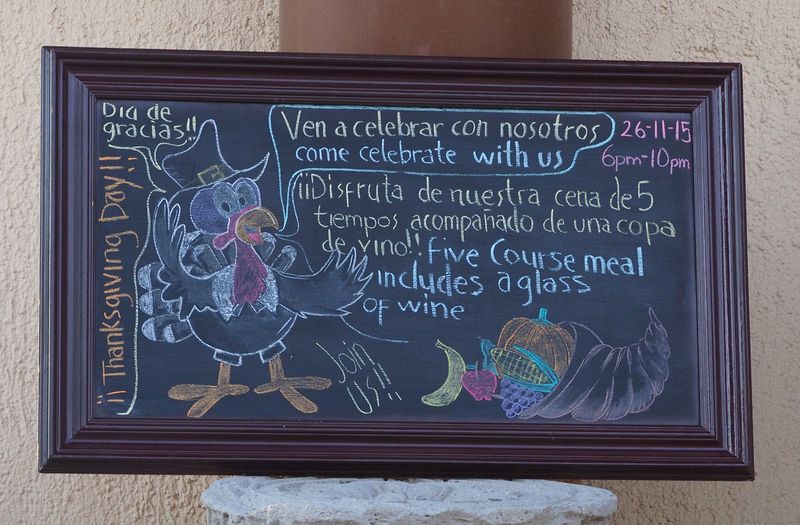 Dia de
gracias!!
¡¡Thanksgiving Day!!
Ven a celebrar con nosotros
come celebrate with us
26-11-15
6pm-10pm
¡¡Disfruta de nuestra cena de 5
tiempos acompañado de una copa
de vino!! Five Course meal
includes a glass
of wine
Join
Us!!